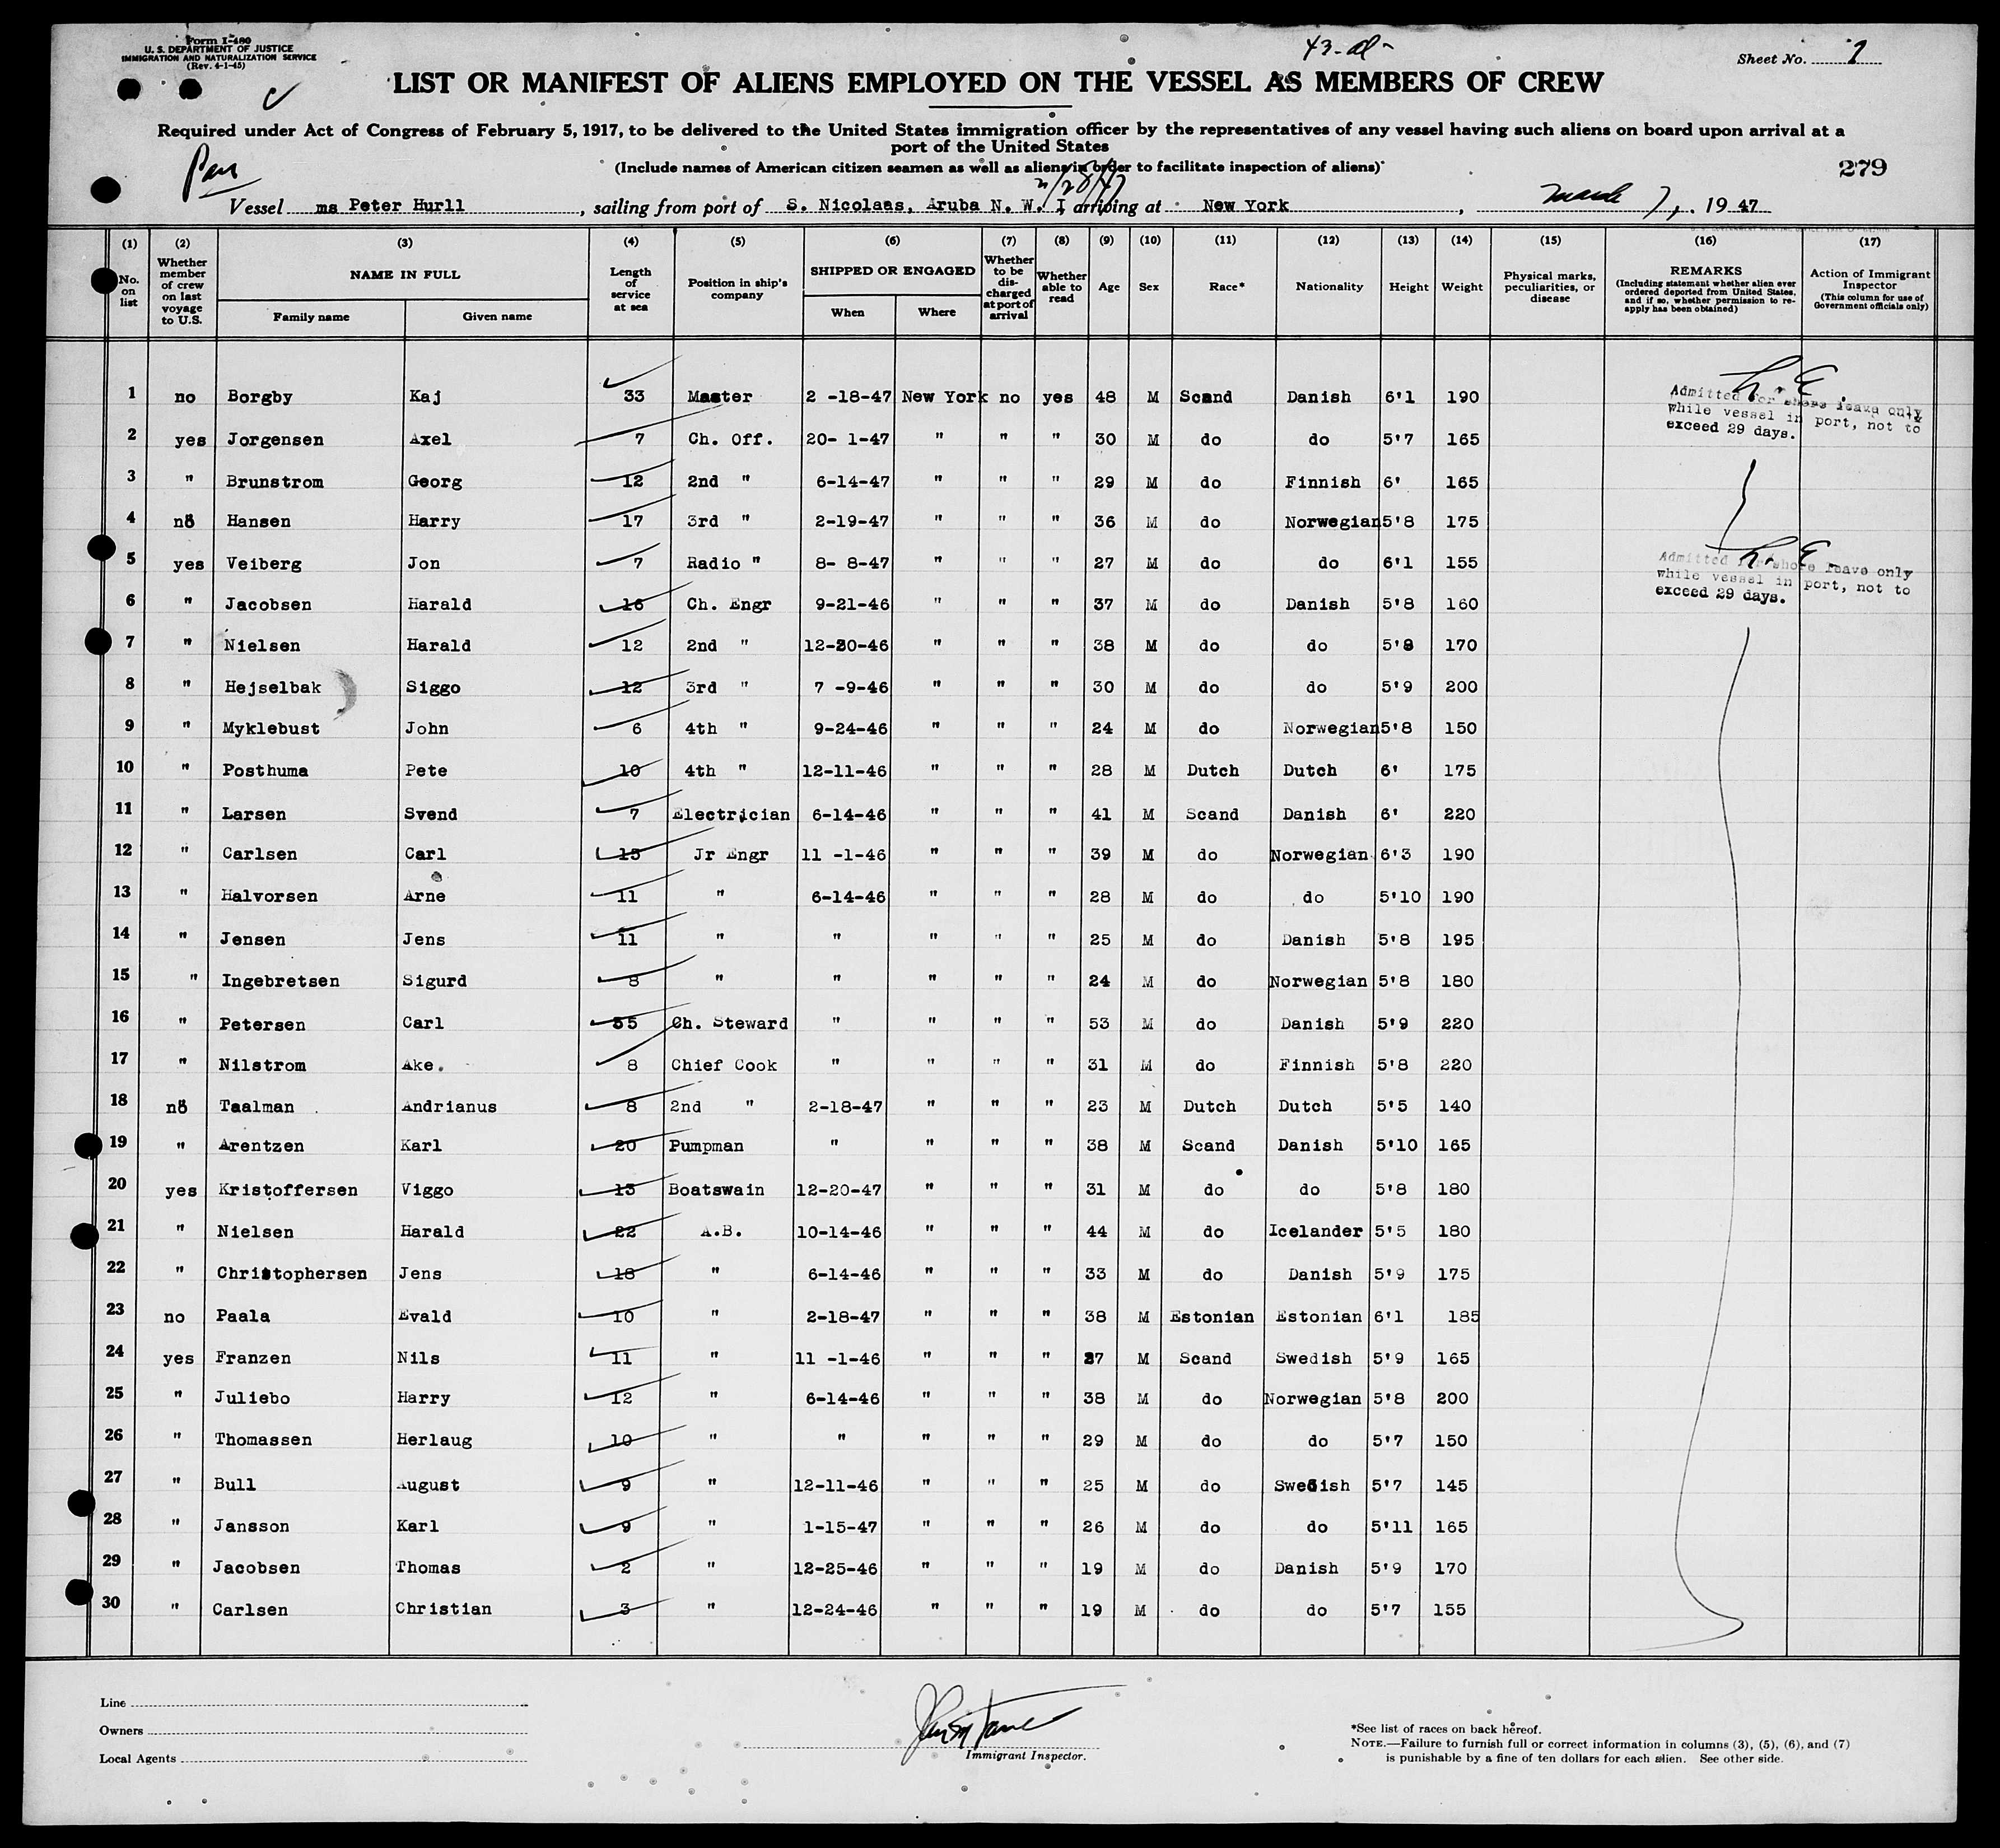 Form I-480
U. S. DEPARTMENT OF JUSTICE
IMMIGRATION AND NATURALIZATION SERVICE
(Rev. 4-1-45)
Sheet No. 1
LIST OR MANIFEST OF ALIENS EMPLOYED ON THE VESSEL AS MEMBERS OF CREW
Required under Act of Congress of February 5, 1917, to be delivered to the United States immigration officer by the representatives of any vessel having such aliens on board upon arrival at a
port of the United States
(Include names of American citizen seamen as well as aliens in order to facilitate inspection of aliens)
279
Pan
2/28/47
Vessel ms Peter Hurll, sailing from port of S. Nicolaas, Aruba N. W. I, arriving at New York, March 7, 1947
(1) (2) (3) (4) (5) (6) (7) (8) (9) (10) (11) (12) (13) (14) (15) (16) (17)
No. on list
Whether member of crew on last voyage to U.S.
NAME IN FULL
Family name Given name
Length of service at sea
Position in ship's company
SHIPPED OR ENGAGED
When Where
Whether to be discharged at port of arrival
Whether able to read
Age Sex Race* Nationality Height Weight
Physical marks, peculiarities, or disease
REMARKS
(Including statement whether alien ever ordered deported from United States, and if so, whether permission to reapply has been obtained)
Action of Immigrant Inspector
(This column for use of Government officials only)
1 no Borgby Kaj 33 Master 2 -18-47 New York no yes 48 M Scand Danish 6'1 190
Admitted for shore leave only
while vessel in port, not to
exceed 29 days.
2 yes Jorgensen Axel 7 Ch. Off. 20- 1-47 " " " 30 M do do 5'7 165
3 " Brunstrom Georg 12 2nd " 6-14-47 " " " 29 M do Finnish 6' 165
4 no Hansen Harry 17 3rd " 2-19-47 " " " 36 M do Norwegian 5'8 175
5 yes Veiberg Jon 7 Radio " 8- 8-47 " " " 27 M do do 6'1 155
Admitted for shore leave only
while vessel in port, not to
exceed 29 days.
6 " Jacobsen Harald 16 Ch. Engr 9-21-46 " " " 37 M do Danish 5'8 160
7 " Nielsen Harald 12 2nd " 12-20-46 " " " 38 M do do 5'8 170
8 " Hejselbak Siggo 12 3rd " 7 -9-46 " " " 30 M do do 5'9 200
9 " Myklebust John 6 4th " 9-24-46 " " " 24 M do Norwegian 5'8 150
10 " Posthuma Pete 10 4th " 12-11-46 " " " 28 M Dutch Dutch 6' 175
11 " Larsen Svend 7 Electrician 6-14-46 " " " 41 M Scand Danish 6' 220
12 " Carlsen Carl 15 Jr Engr 11 -1-46 " " " 39 M do Norwegian 6'3 190
13 " Halvorsen Arne 11 " 6-14-46 " " " 28 M do do 5'10 190
14 " Jensen Jens 11 " " " " " 25 M do Danish 5'8 195
15 " Ingebretsen Sigurd 8 " " " " " 24 M do Norwegian 5'8 180
16 " Petersen Carl 35 Ch. Steward " " " " 53 M do Danish 5'9 220
17 " Nilstrom Ake. 8 Chief Cook " " " " 31 M do Finnish 5'8 220
18 no Taalman Andrianus 8 2nd " 2-18-47 " " " 23 M Dutch Dutch 5'5 140
19 " Arentzen Karl 20 Pumpman " " " " 38 M Scand Danish 5'10 165
20 yes Kristoffersen Viggo 13 Boatswain 12-20-47 " " " 31 M do do 5'8 180
21 " Nielsen Harald 22 A.B. 10-14-46 " " " 44 M do Icelander 5'5 180
22 " Christophersen Jens 18 " 6-14-46 " " " 33 M do Danish 5'9 175
23 no Paala Evald 10 " 2-18-47 " " " 38 M Estonian Estonian 6'1 185
24 yes Franzen Nils 11 " 11 -1-46 " " " 27 M Scand Swedish 5'9 165
25 " Juliebo Harry 12 " 6-14-46 " " " 38 M do Norwegian 5'8 200
26 " Thomassen Herlaug 10 " " " " " 29 M do do 5'7 150
27 " Bull August 9 " 12-11-46 " " " 25 M do Swedish 5'7 145
28 " Jansson Karl 9 " 1-15-47 " " " 26 M do do 5'11 165
29 " Jacobsen Thomas 2 " 12-25-46 " " " 19 M do Danish 5'9 170
30 " Carlsen Christian 3 " 12-24-46 " " " 19 M do do 5'7 155
Line
Owners
Local Agents
Immigrant Inspector.
*See list of races on back hereof.
NOTE.—Failure to furnish full or correct information in columns (3), (5), (6), and (7)
is punishable by a fine of ten dollars for each alien. See other side.